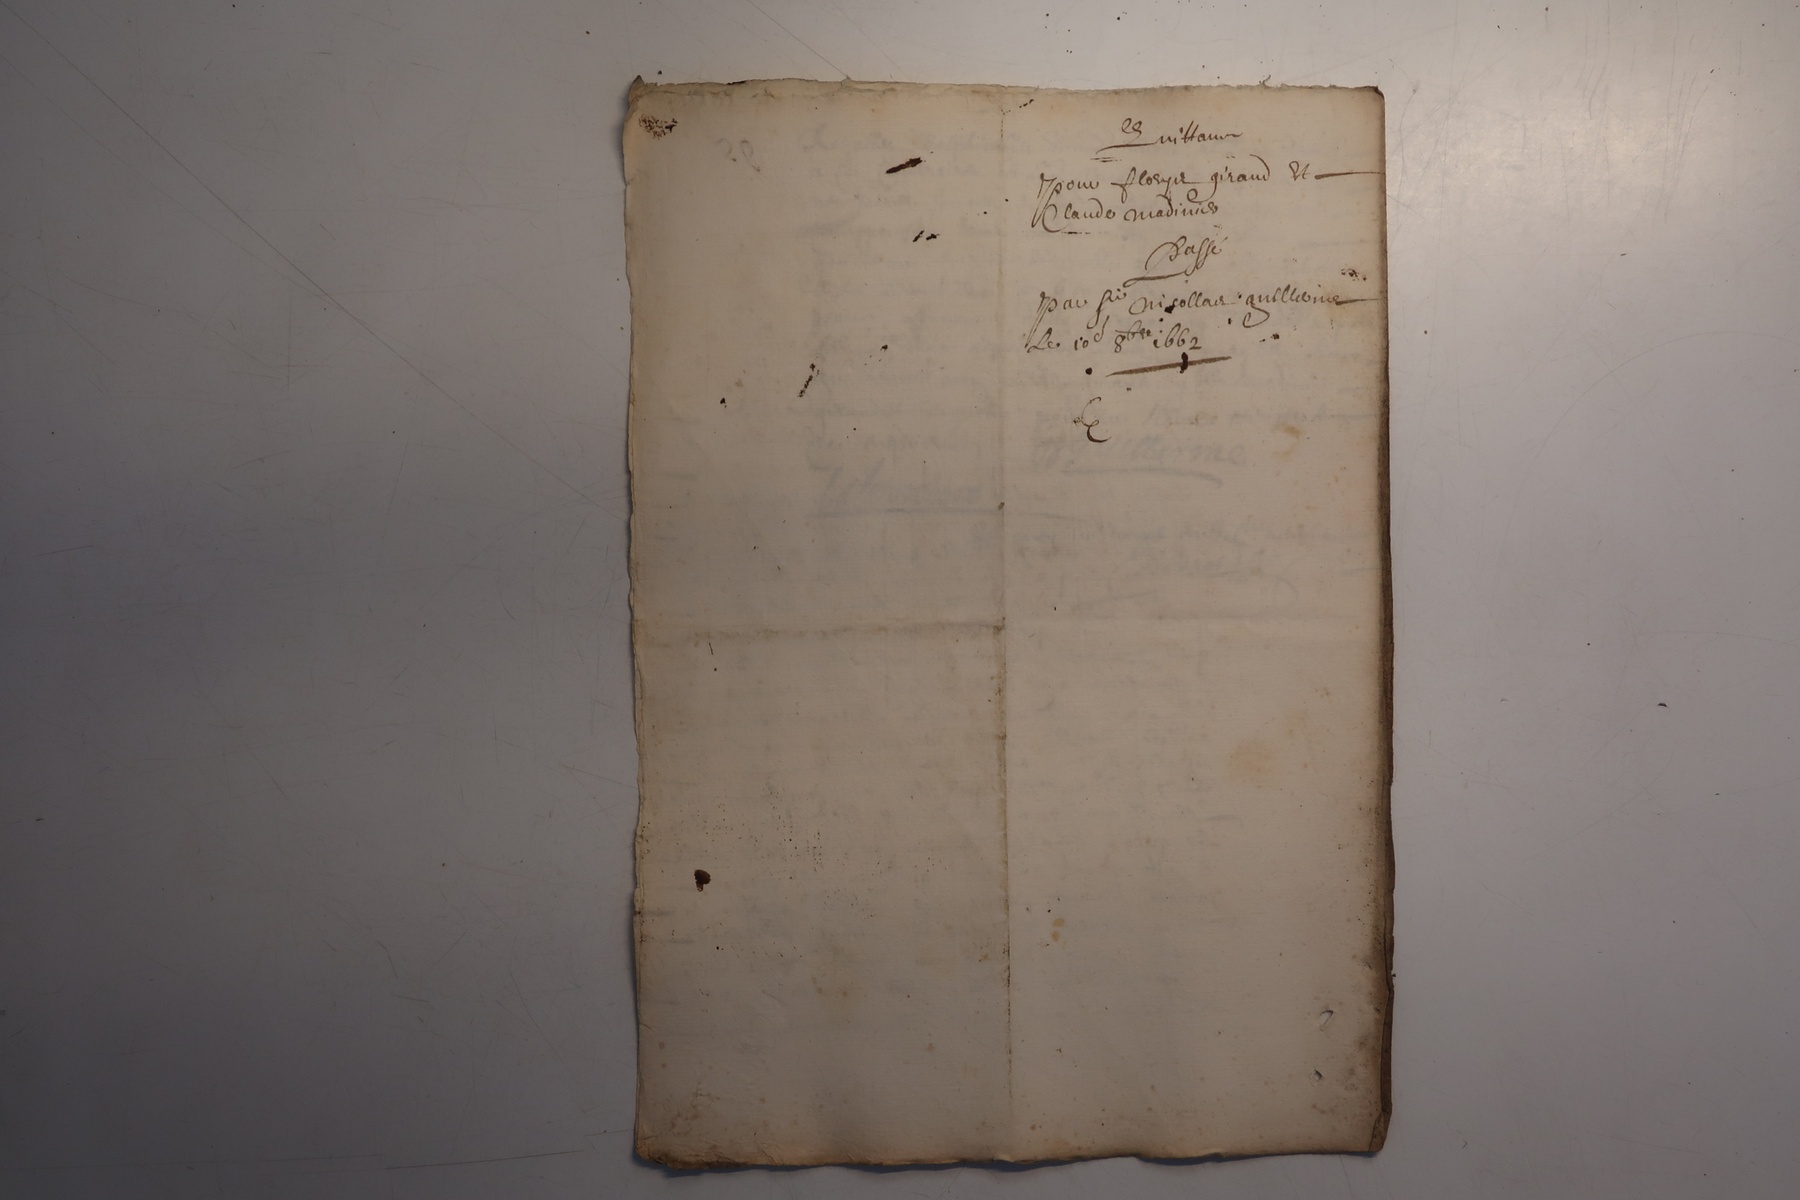 Quittance
pour fleurye giraud Et
Claude madinier
Passé
par sr nicollas guillerme
Le 10e 8bre 1662